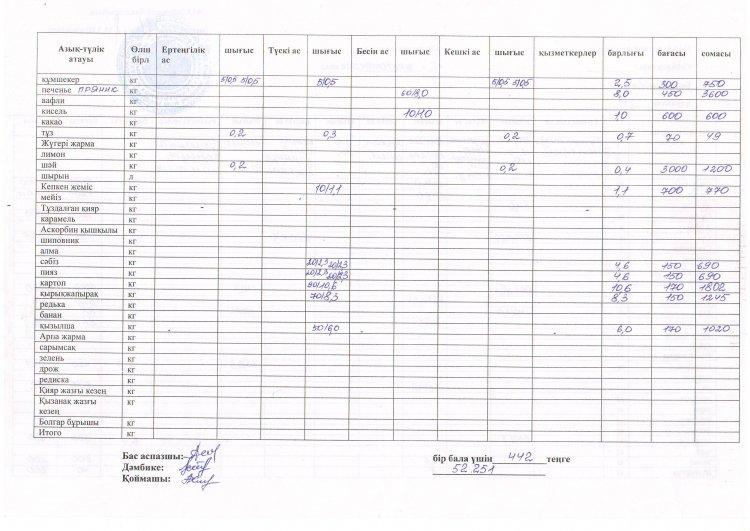 Азық-түлік атауы Өлш бірл Ертеңгілік ас шығыс Түскі ас шығыс Бесін ас шығыс Кешкі ас шығыс қызметкерлер барлығы бағасы сомасы
құмшекер кг 5/0,5 5/0,5 5/0,5 5/0,5 5/0,5 2,5 300 750
печенье пряник кг 60/8,0 8,0 450 3600
вафли кг
кисель кг 10/1,0 10 600 600
какао кг
тұз кг 0,2 0,3 0,2 0,7 70 49
Жүгері жарма кг
лимон кг
шәй кг 0,2 0,2 0,4 3000 1200
шырын л
Кепкен жеміс кг 10/1,1 1,1 700 770
мейіз кг
Тұздалған қияр кг
карамель кг
Аскорбин қышқылы кг
шиповник кг
алма кг
сәбіз кг 20/2,3 20/2,3 4,6 150 690
пияз кг 20/2,3 20/2,3 4,6 150 690
картоп кг 90/10,6 10,6 170 1802
қырыққапырақ кг 70/8,3 8,3 150 1245
редька кг
банан кг
қызылша кг 50/6,0 6,0 170 1020
Арпа жарма кг
сарымсақ кг
зелень кг
дрож кг
редиска кг
Қияр жазғы кезең кг
Қызанақ жазғы кезең кг
Болгар бұрышы кг
Итого кг
Бас аспазшы: бір бала үшін 442 теңге
Дәмбике: 52.251
Қоймашы: